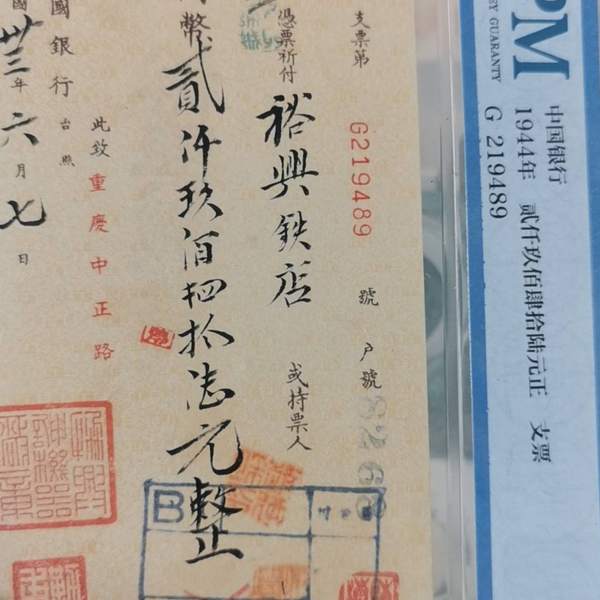 PM
EY GUARANTY
中国银行
1944年 贰仟玖佰肆拾陆元正 支票
G 219489
支票第 G219489 號 戶號
憑票祈付 裕興鉄店 或持票人
幣貳仟玖佰肆拾陸元整
此致 重慶中正路
國銀行 台照
卅三年六月七日
B